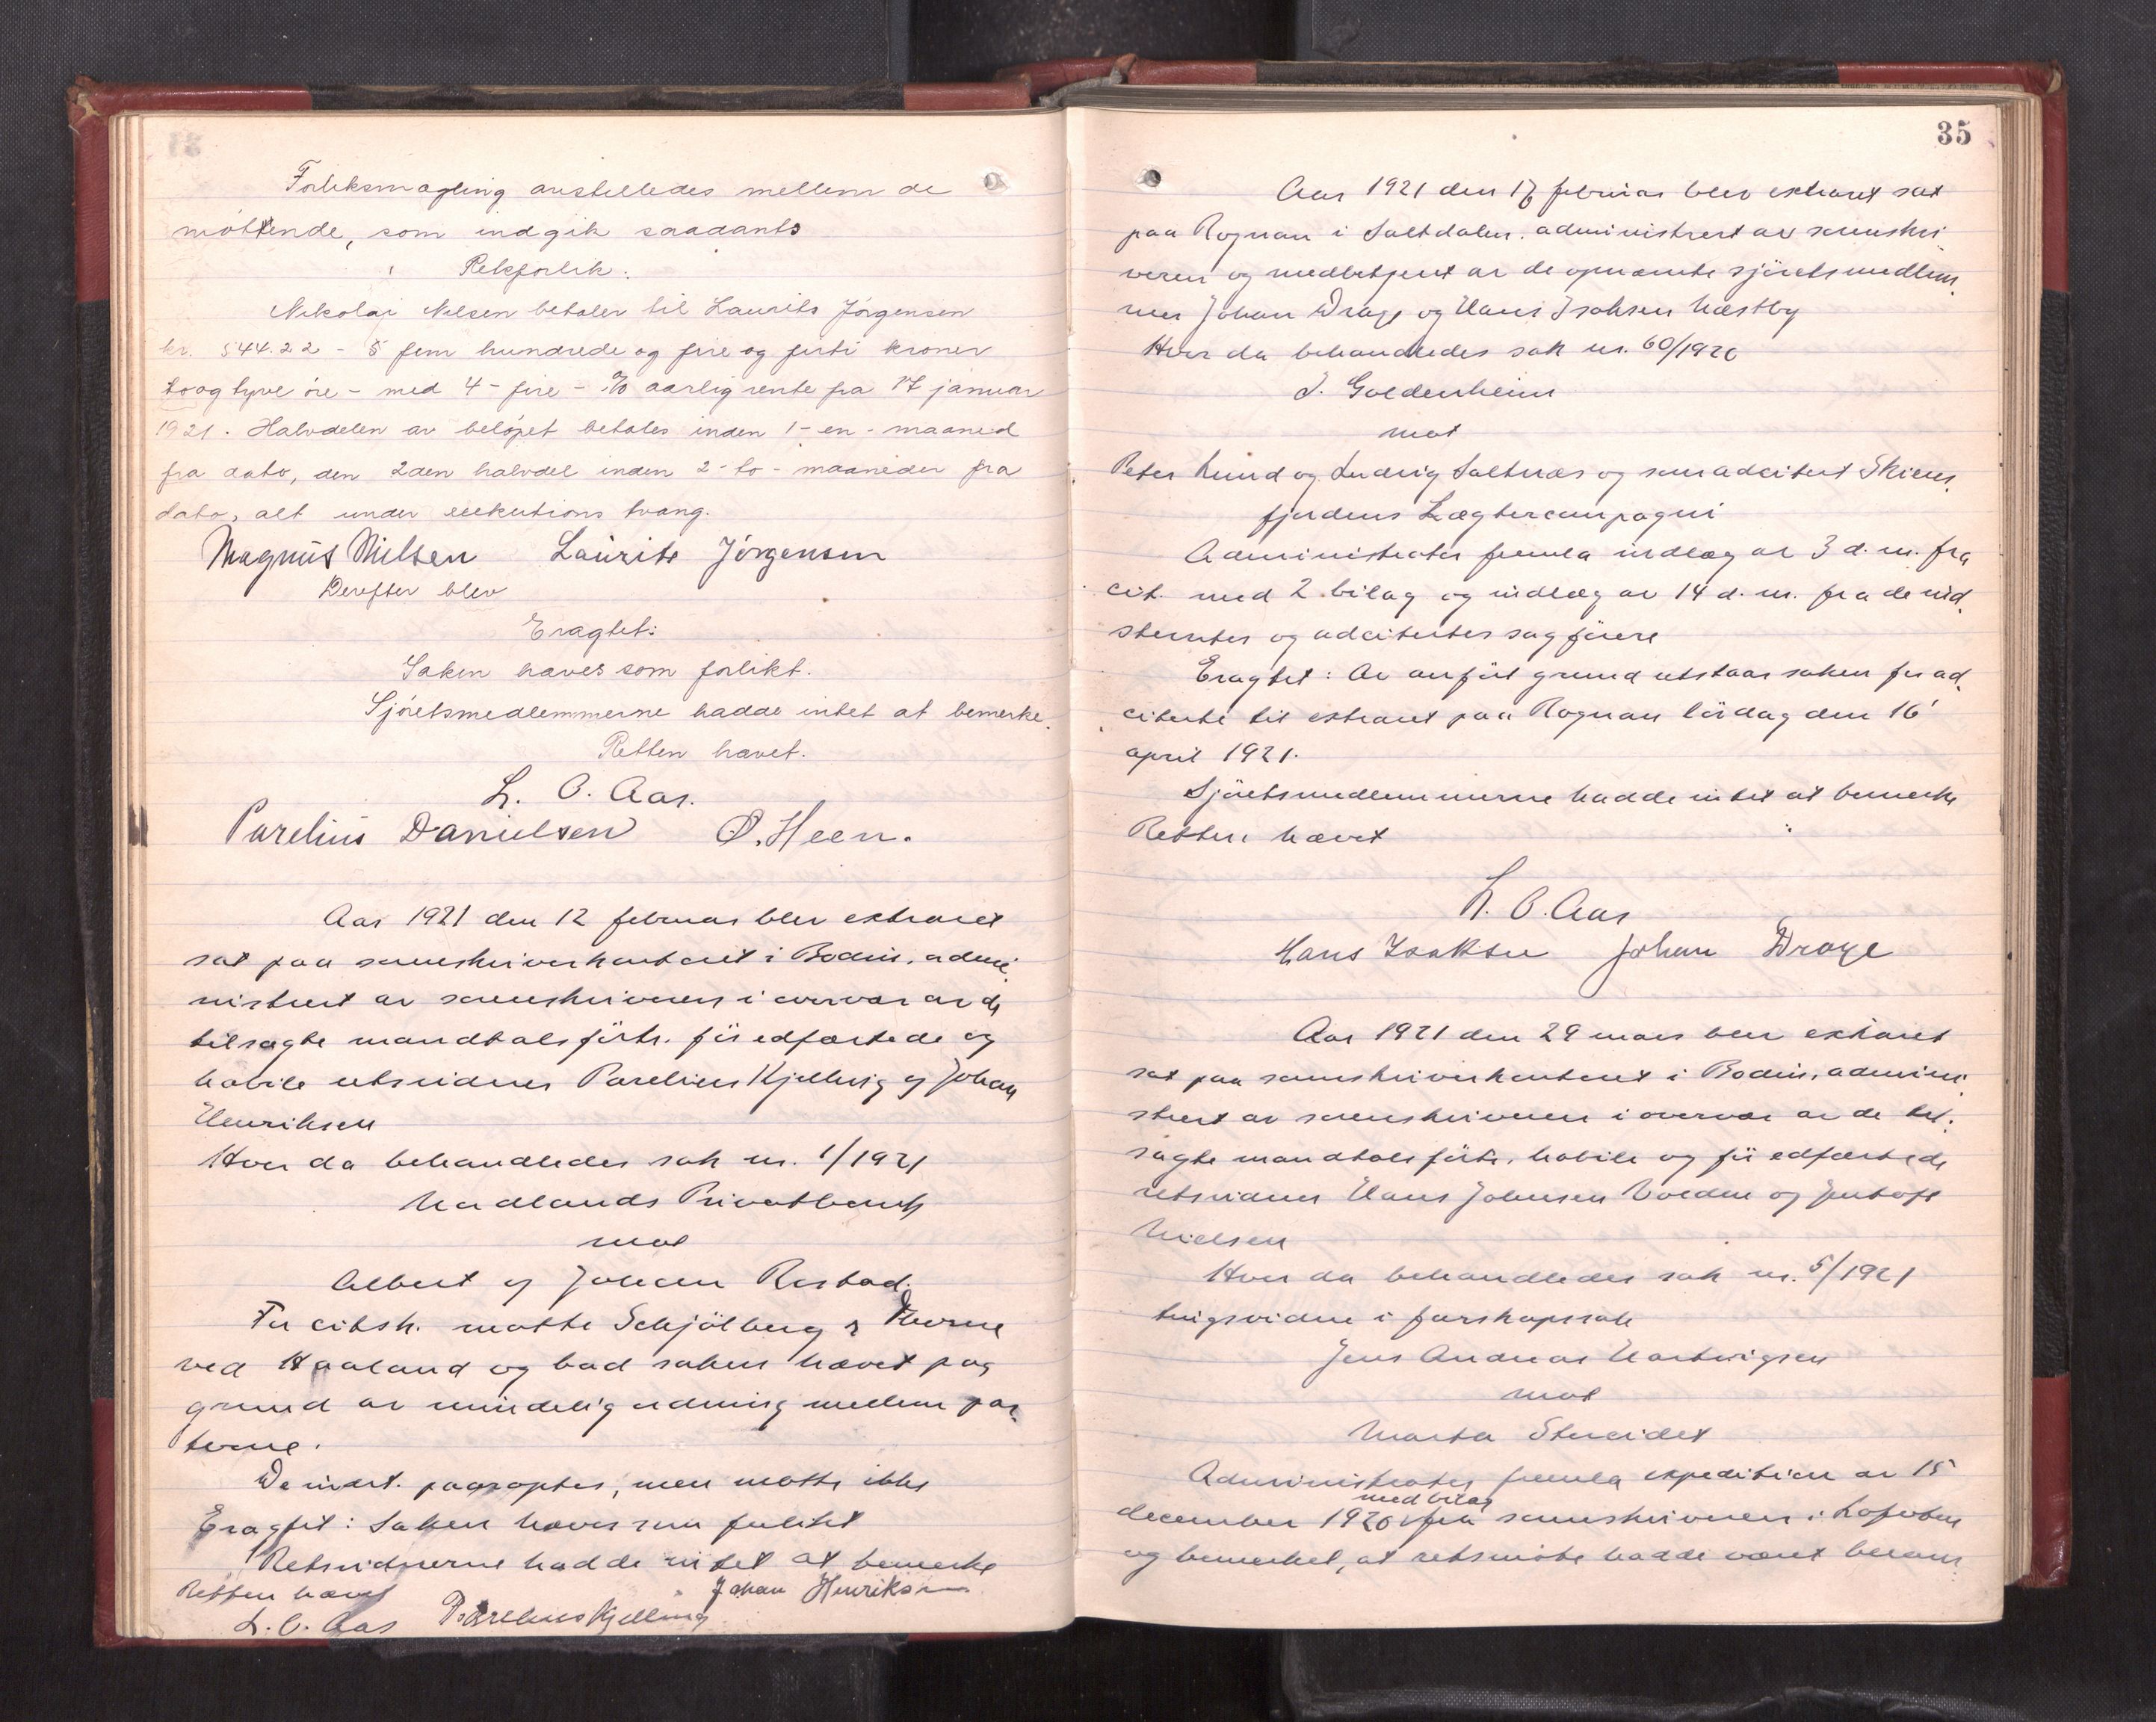 Forliksmægling anstilledes mellem de
møttende, som indgik saadant
Retsforlik:
Nikolai Nilsen betaler til Laurits Jørgensen
kr. 544.22 - 5 fem hundrede og fire og førti kroner
to og tyve øre - med 4 - fire - % aarlig rente fra 17 januar
1921. Halvdelen av beløpet betales inden 1 - en - maaned
fra dato, den 2den halvdel inden 2 - to - maaneder fra
dato, alt under eksekutions tvang.
Magnus Nilsen Laurits Jørgensen
Derefter blev
Eragtet:
Saken hæves som forlikt.
Sjøretsmedlemmerne hadde intet at bemerke.
Retten hævet.
L. O. Aas.
Parelius Danielsen O. Heen.
Aar 1921 den 12 februar blev extraret
sat paa sorenskriverkontoret i Bodin, admi
nistrert av sorenskriveren i overvær av de
tilsagte mandtalsførte, før edfæstede og
habile retsvidner Parelius Kjelling og Johan
Henriksen
Hvor da behandledes sak nr. 1/1921
Nordlands Privatbank
mot
Albert og Johan Rostad.
For citsk. møtte Schjølberg &
ved Haaland og bad saken hævet paa
grund av mindelig ordning mellem par
terne.
De indst. paaroptes, men møtte ikke
Eragtet: Saken hæves som forlikt
Retsvidnerne hadde intet at bemerke
Retten hævet Johan Henriksen
L. O. Aas Parelius Kjelling
35
Aar 1921 den 17 februar blev extraret sat
paa Rognan i Saltdalen, administrert av sorenskri
veren og medbetjent av de opnævnte sjøretsmedlem
mer Johan Drage og Hans Isaksen Næstby
Hvor da behandledes sak nr. 60/1920
J. Goldenheim
mot
Peter Lund og Ludvig Saltnes og som adcitert Skiens
fjordens Lægtercompagni
Administrator fremla indlæg av 3 d. m. fra
cit. med 2 bilag og indlæg av 14 d. m. fra de ind
stevntes og adcitertes sagfører
Eragtet: Av anført grund utstaar saken for ad
citerte til extraret paa Rognan lørdag den 16
april 1921.
Sjøretsmedlemmerne hadde intet at bemerke
Retten hævet
L. O. Aas
Hans Isaksen Johan Drage
Aar 1921 den 29 mars blev extraret
sat paa sorenskriverkontoret i Bodin, admini
strert av sorenskriveren i overvær av de til
sagte mandtalsførte, habile og før edfæstede
retsvidner Hans Johnsen Volden og Jentoft
Nielsen
Hvor da behandledes sak nr. 5/1921
tingsvidne i farskapssak
Jens Andreas Hartvigsen
mot
Marta
Administrator fremla expedition av 15
december 1920 med bilag fra sorenskriveren i Lofoten
og bemerket, at retsmøte hadde været beram